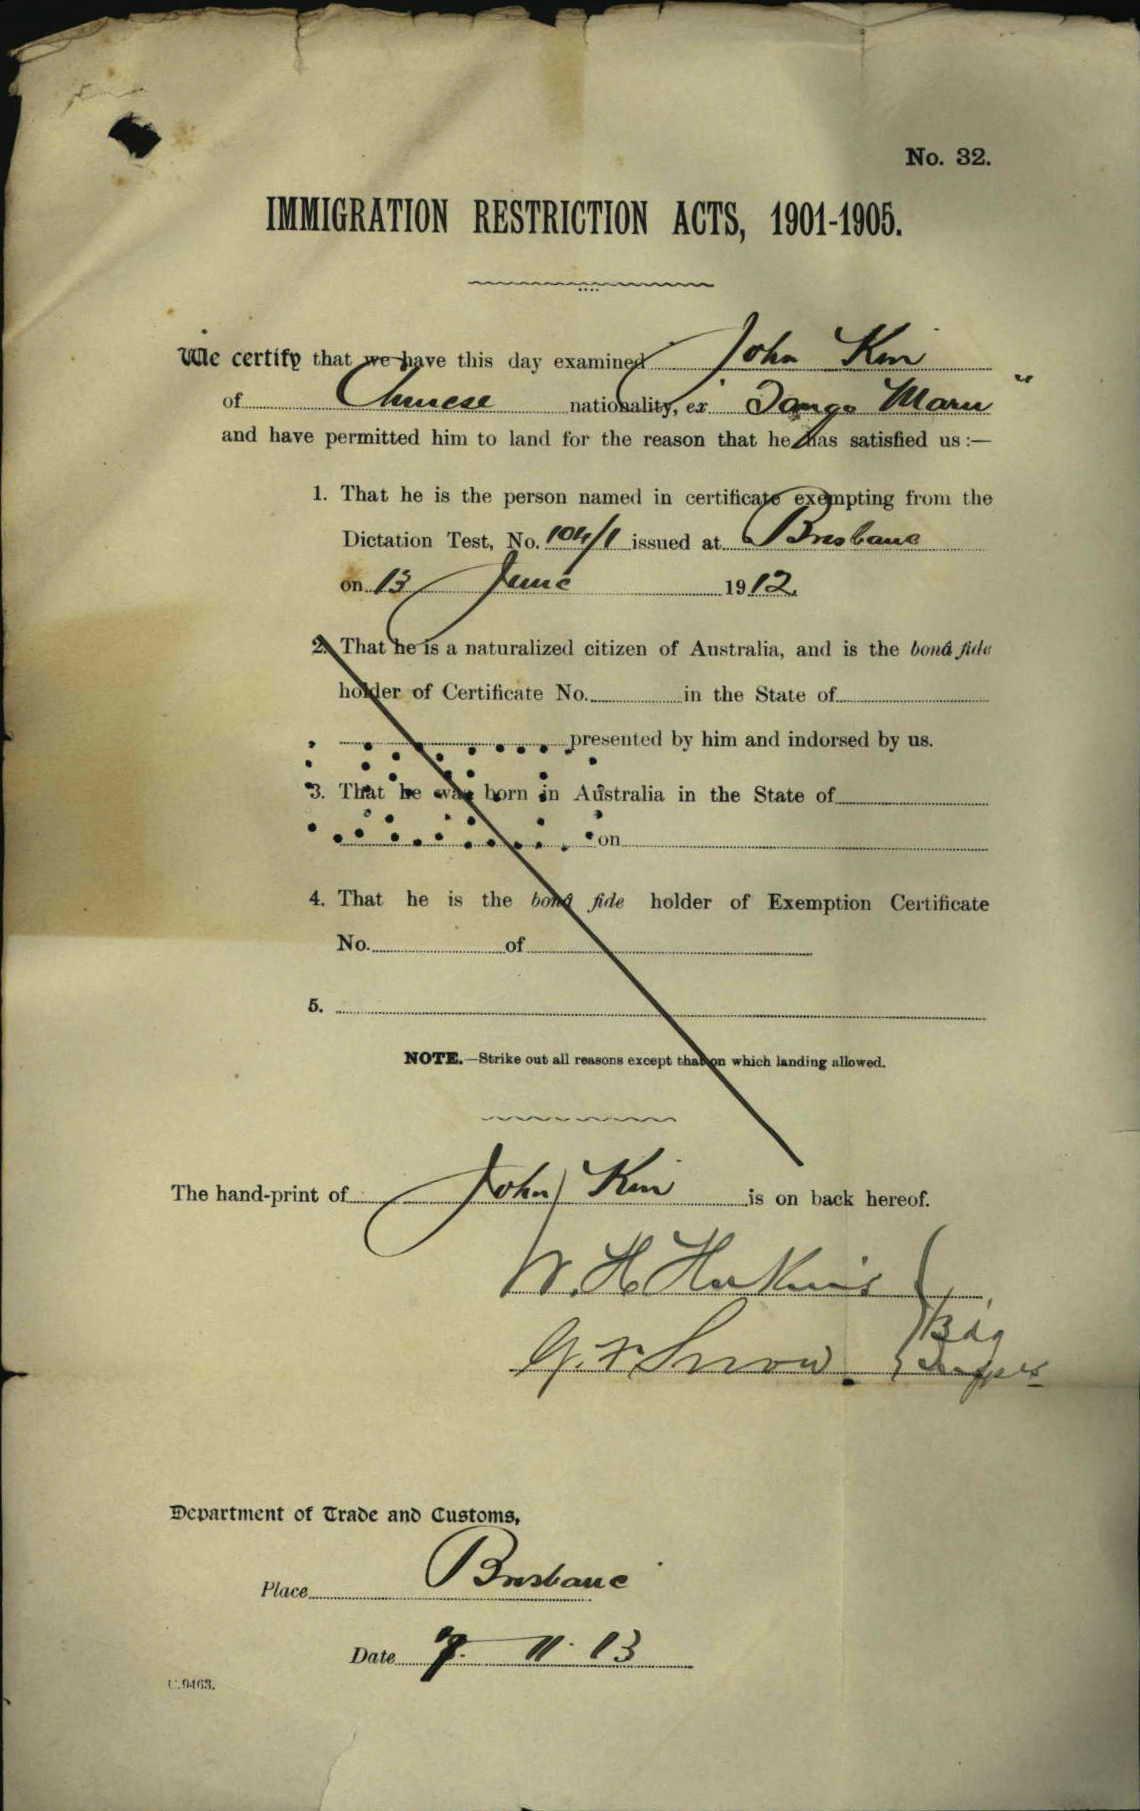 No. 32.
IMMIGRATION RESTRICTION ACTS, 1901-1905.
We certify that we have this day examined John Kin
of Chinese nationality, ex "Tango Maru"
and have permitted him to land for the reason that he has satisfied us :—
1. That he is the person named in certificate exempting from the
Dictation Test, No. 104/1 issued at Brisbane
on 13 June 1912.
2. That he is a naturalized citizen of Australia, and is the bonâ fide
holder of Certificate No. in the State of
presented by him and indorsed by us.
3. That he was born in Australia in the State of
on
4. That he is the bonâ fide holder of Exemption Certificate
No. of
5.
NOTE.—Strike out all reasons except that on which landing allowed.
The hand-print of John Kin is on back hereof.
W. H.
G. F. Snow. Bdg
Department of Trade and Customs,
Place Brisbane
Date 7. 11. 13
C.9463.